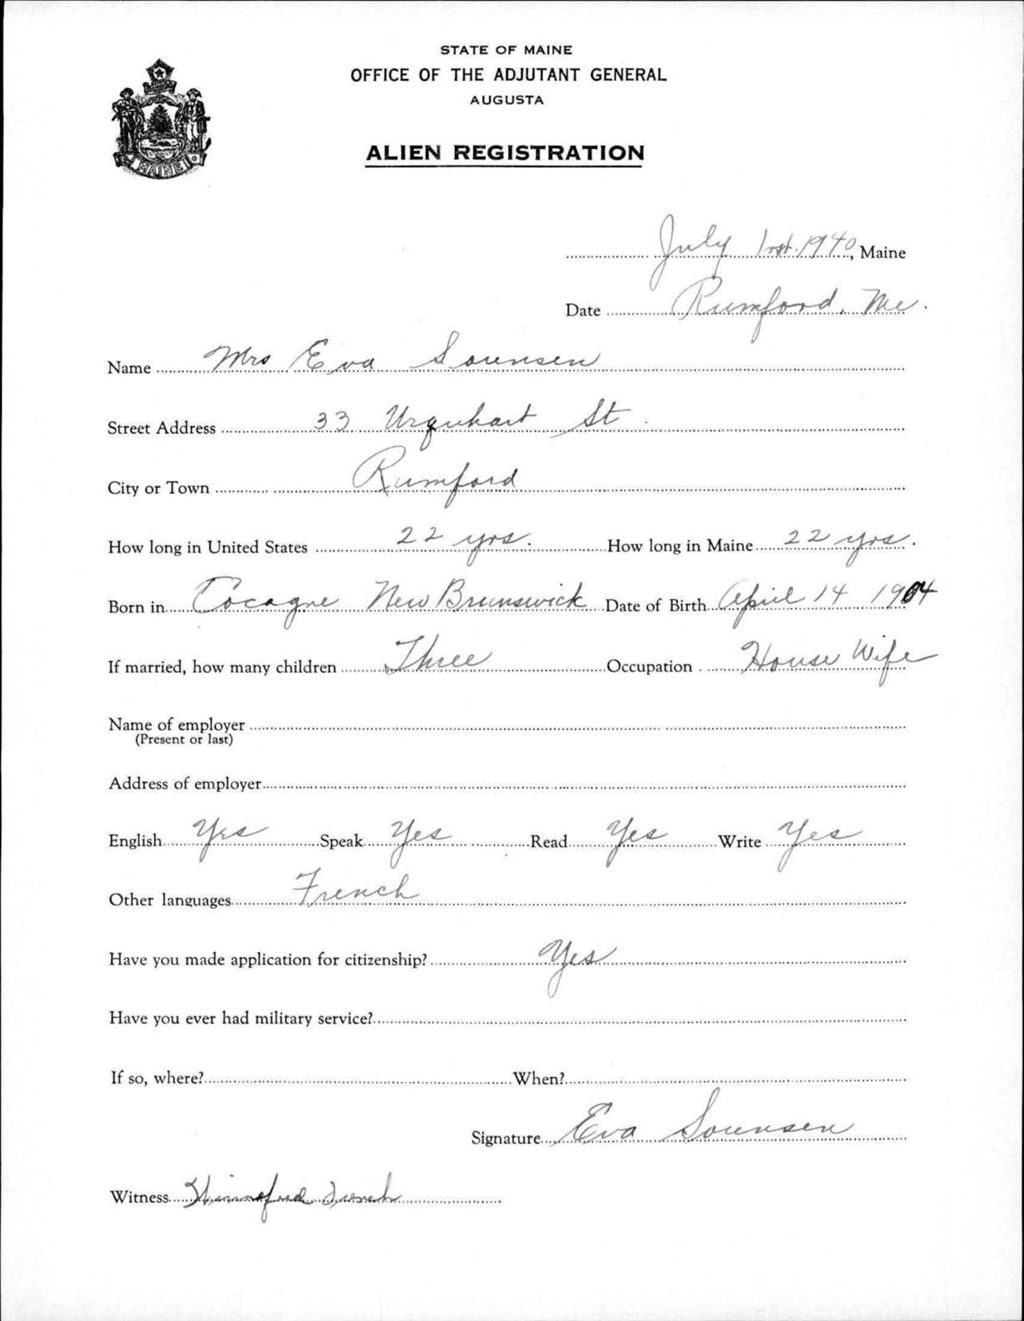 STATE OF MAINE
OFFICE OF THE ADJUTANT GENERAL
AUGUSTA
ALIEN REGISTRATION
MAINE
July 1rst 1940, Maine
Date Rumford, Me.
Name Mrs Eva Sorensen
Street Address 33 Urquhart St.
City or Town Rumford
How long in United States 22 yrs. How long in Maine 22 yrs.
Born in Cocagne New Brunswick Date of Birth April 14 1904
If married, how many children Three Occupation House Wife
Name of employer
(Present or last)
Address of employer
English Yes Speak Yes Read Yes Write Yes
Other languages French
Have you made application for citizenship? Yes
Have you ever had military service?
If so, where? When?
Signature Eva Sorensen
Witness